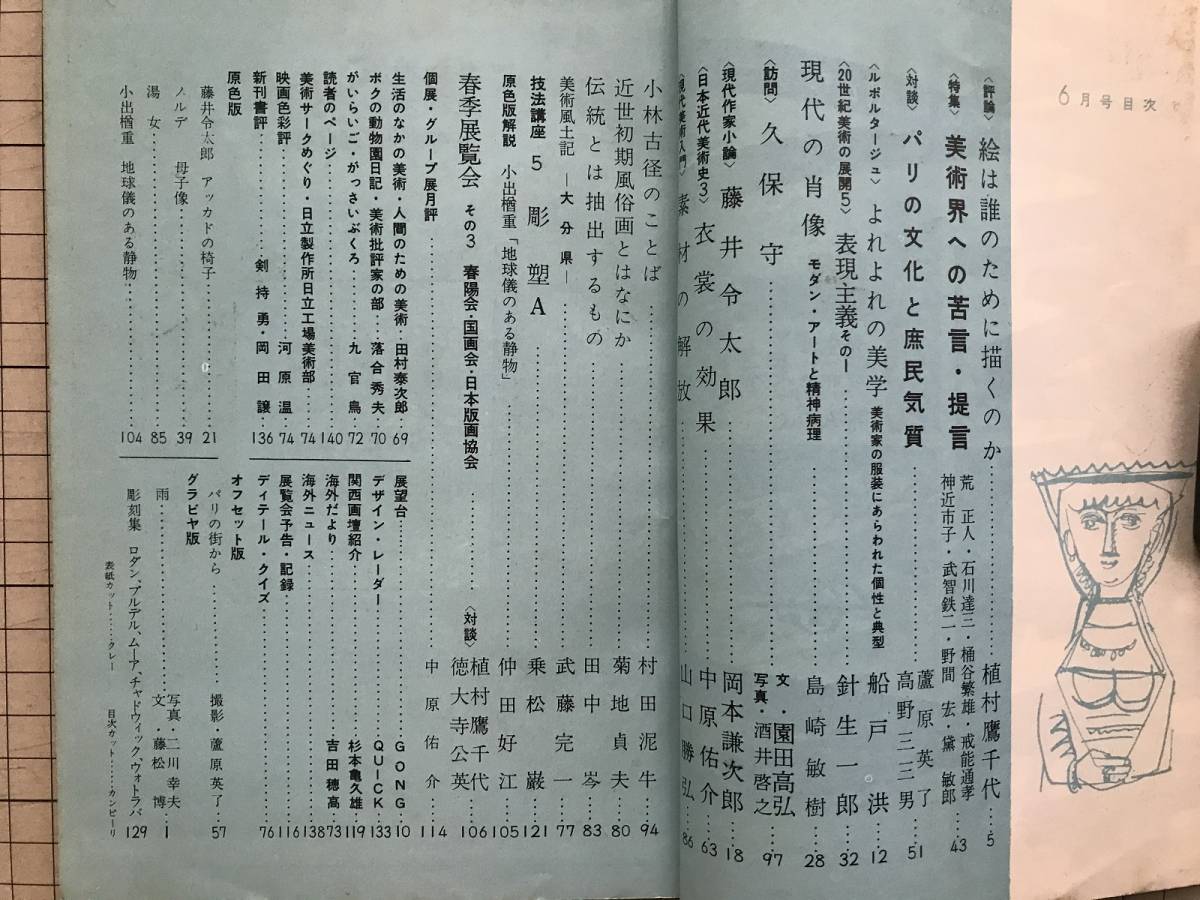 6月号目次
〈評論〉 絵は誰のために描くのか…植村鷹千代…5
〈特集〉 美術界への苦言・提言 荒 正人・石川達三・桶谷繁雄・戒能通孝
神近市子・武智鉄二・野間 宏・黛 敏郎…43
〈対談〉 パリの文化と庶民気質…蘆原英了
高野三三男…51
〈ルポルタージュ〉 よれよれの美学 美術家の服装にあらわれた個性と典型 船戸 洪…12
〈20世紀美術の展開5〉 表現主義 その一…針生一郎…32
現代の肖像 モダン・アートと精神病理…島崎敏樹…28
〈訪問〉 久保 守…文・園田高弘
写真・酒井啓之…97
〈現代作家小論〉 藤井令太郎…岡本謙次郎…18
〈日本近代美術史3〉 衣裳の効果…中原佑介…63
〈現代美術入門〉 素材の解放…山口勝弘…86
小林古径のことば…村田泥牛…94
近世初期風俗画とはなにか…菊地貞夫…80
伝統とは抽出するもの…田中 岑…83
美術風土記 ―大分県―…武藤完一…77
技法講座 5 彫塑A…乗松 巌…121
原色版解説 小出楢重「地球儀のある静物」…仲田好江…105
春季展覧会 その3 春陽会・国画会・日本版画協会…〈対談〉植村鷹千代
徳大寺公英…106
個展・グループ展月評…中原佑介…114
生活のなかの美術・人間のための美術・田村泰次郎…69
ボクの動物園日記・美術批評家の部…落合秀夫…70
がいらいご・がっさいぶくろ…九官鳥…72
読者のページ…140
美術サークめぐり・日立製作所日立工場美術部…74
映画色彩評…河原 温…74
新刊書評…剣持 勇・岡田 譲…136
原色版
藤井令太郎 アッカドの椅子…21
ノルデ 母子像…39
湯女…85
小出楢重 地球儀のある静物…104
展望台…GONG…10
デザイン・レーダー…QUICK…133
関西画壇紹介…杉本亀久雄…119
海外だより…吉田穂高…73
海外ニュース…138
展覧会予告・記録…116
ディテール・クイズ…76
オフセット版
パリの街から…撮影・蘆原英了…57
グラビヤ版
雨…写真・二川幸夫
文・藤松 博…1
彫刻集 ロダン、ブルデル、ムーア、チャドウィック、ヴォトラバ 129
表紙カット……クレー 目次カット……カンピーリ